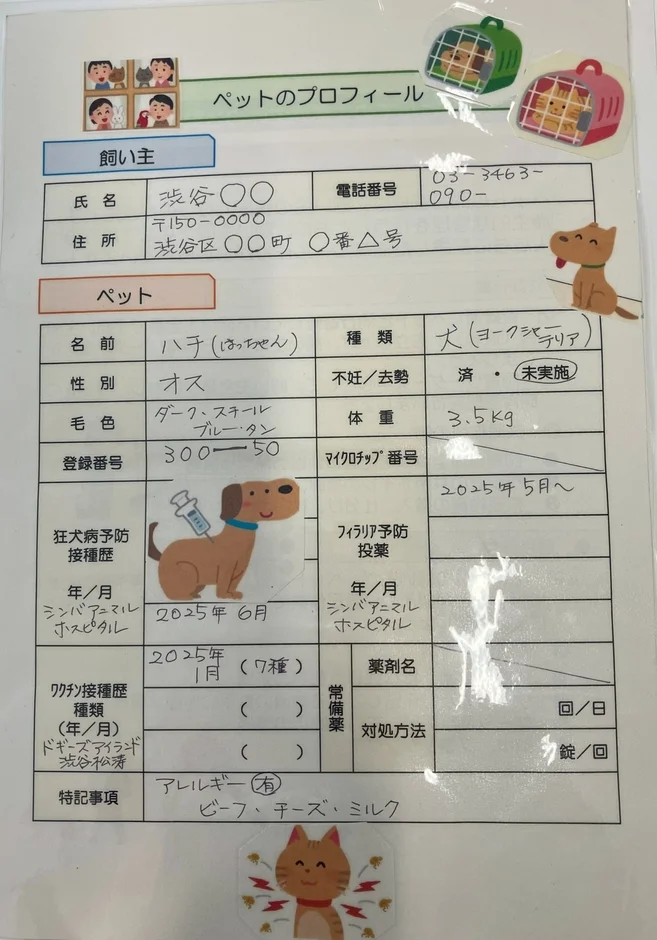 ペットのプロフィール
飼い主
氏名 渋谷〇〇 電話番号 03-3463-
090-
住所 〒150-0000
渋谷区〇〇町 〇番△号
ペット
名前 ハチ(はっちゃん) 種類 犬(ヨークシャー
テリア)
性別 オス 不妊/去勢 済・未実施
毛色 ダーク・スチール
ブルー・タン
体重 3.5kg
登録番号 300-50 マイクロチップ番号
狂犬病予防
接種歴
年/月
シンバアニマル
ホスピタル
2025年 6月
フィラリア予防
投薬
年/月
シンバアニマル
ホスピタル
2025年5月~
ワクチン接種歴
種類
(年/月)
ドギーズアイランド
渋谷松濤
2025年
1月 (7種)
( )
( )
常備薬
薬剤名
対処方法
回/日
錠/回
特記事項 アレルギー 有
ビーフ・チーズ・ミルク